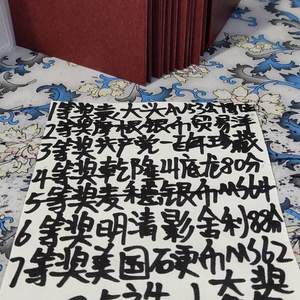 1等奖袁大头AU53金
2等奖摩根银币贸易洋
3等奖共产党一百年珍藏
4等奖乾隆 底龙80分
5等奖麦穗银币MS64
6等奖明清影舍利88分
7等奖美国硬币MS62
选1大奖